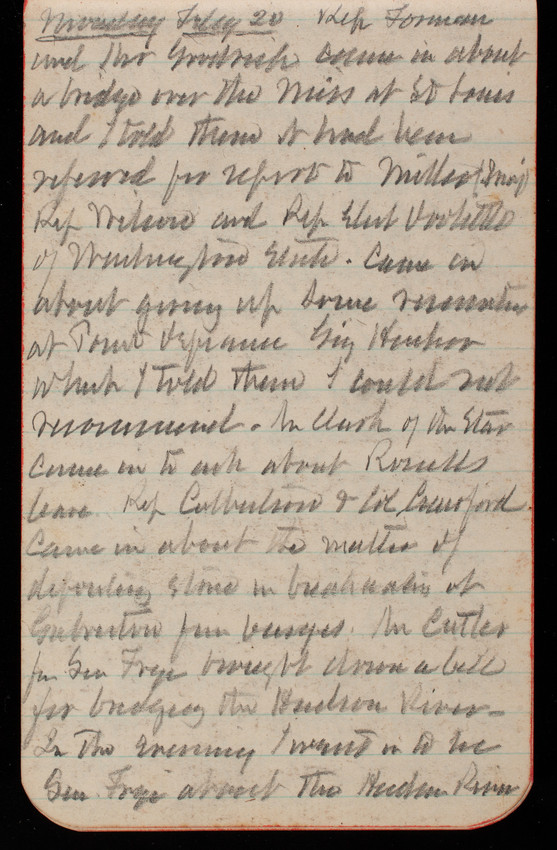 Monday Feby 20 Rep Forman
and Mr Goodrich came in about
a bridge over the Miss at St Louis
and I told them it had been
referred for report to Miller (Maj)
Rep Wilson and Rep Elect Doolittle
of Washington State. Came in
about giving up some reservation
at Point Defiance Gig Harbor
which I told them I could not
recommend. Mr Clark of the Star
came in to ask about
leave. Rep Culberson & Col Crawford
came in about the matter of
depositing stone in breakwater at
Galveston from barges. Mr Cutler
for Sen Frye brought down a bill
for bridging the Hudson River
In the evening I went in to see
Sen Frye about the Hudson River